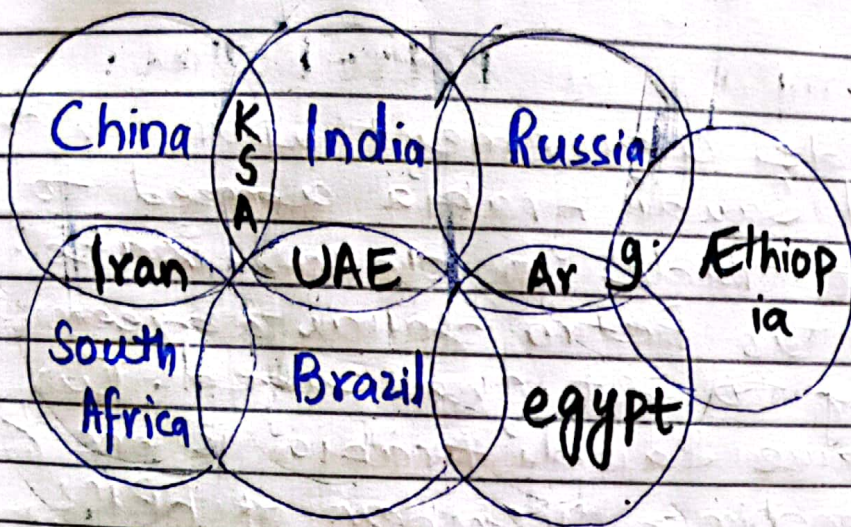 China K S A India Russia
Iran UAE Ar g. Æthiop
ia
South
Africa Brazil egypt